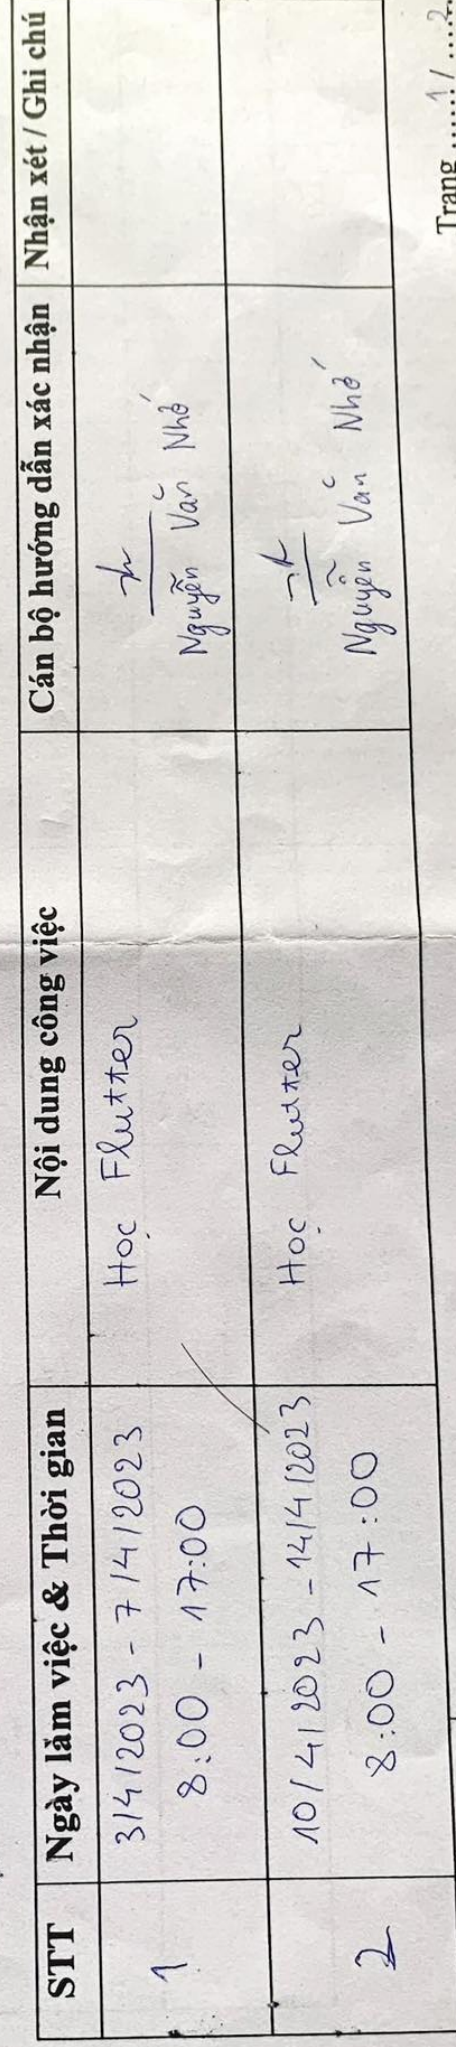 STT Ngày làm việc & Thời gian Nội dung công việc Cán bộ hướng dẫn xác nhận Nhận xét / Ghi chú
1 3/4/2023 - 7/4/2023 Học Flutter
8:00 - 17:00 Nguyễn Văn Nhớ
2 10/4/2023 - 14/4/2023 Học Flutter
8:00 - 17:00 Nguyễn Văn Nhớ
Trang .....1/....2